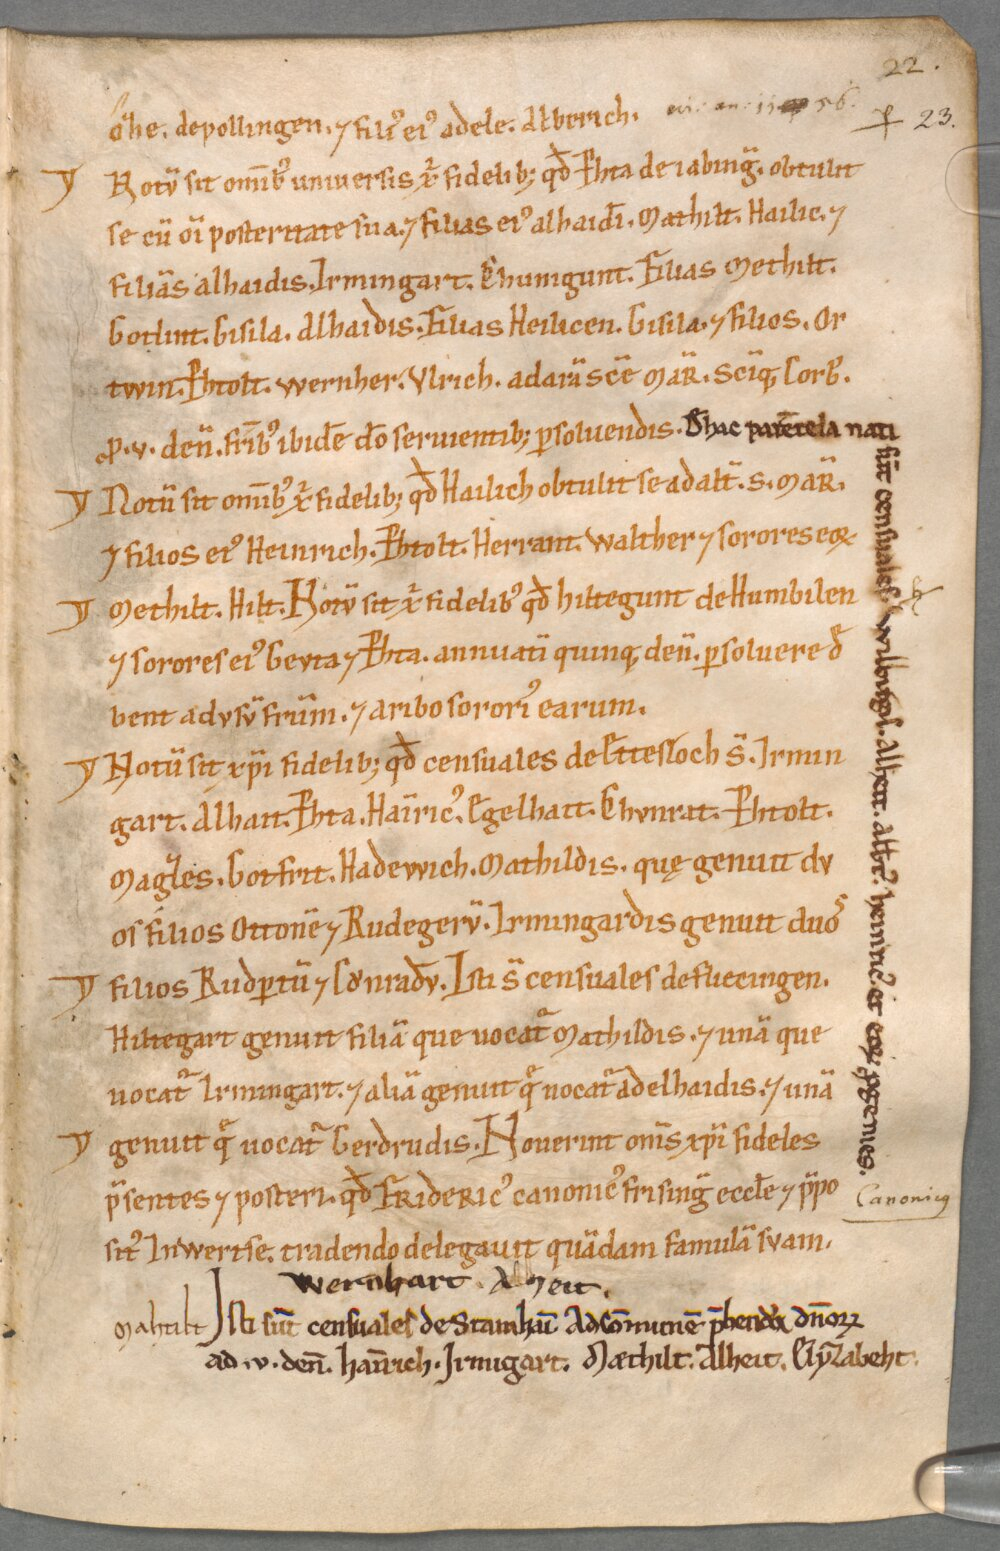 22.
23.
Oͮhe. de pollingen. ⁊ filiꝰ eiꝰ adele. Alberich.
Notū sit om̄ibꝰ uniuersis xp̄i fidelibꝫ qđ Ehta de iabinḡ. obtulit
se cū oī posteritate sua. ⁊ filias eiꝰ alhaid̄. Mathilt. Hailic. ⁊
filiās alhaidis. Irmingart. Chunigunt. Filias Methilt.
Gotlint. Gisila. Alhaidis. Filias Heilicen. Gisila. ⁊ filios. Or
twin. Ehtolt. Wernher. Vlrich. ad arā sc̄e Mar̄. Sc̄iqꝫ Corb̄.
ꝓ. v. den̄. fr̄ibꝰ ibidē do seruientibꝫ ꝑsoluendis. De hac parētela nati
sūt censuales. Wilbirgis. Alheit. Albt̄. heinricꝰ. et eoꝝ ꝓgenies.
Notū sit om̄ibꝰ xp̄i fidelibꝫ qđ Hailich obtulit se ad alt̄. S. Mar̄.
⁊ filios eiꝰ Heinrich. Ehtolt. Herrant. Walther ⁊ sorores eoꝝ
Methilt. Hilt. Notū sit xp̄i fidelibꝰ qđ hiltegunt de Humbilen
⁊ sorores eiꝰ Geuta ⁊ Ehta. annuatī quinqꝫ den̄. ꝑsoluere đ
bent ad vsū fr̄um. ⁊ aribo sororiꝰ earum.
Notū sit xp̄i fidelibꝫ qđ censuales de Ettesloch s̄. Irmin
gart. Alhait. Ehta. Hainricꝰ. Egelhait. Chvnrat. Ehtolt.
Magͥles. Gotfrit. Hadewich. Mathildis. quę genuit dv
os filios Ottonē ⁊ Rudegerū. Irmingardis genuit duoˢ
filios Rudꝑtū ⁊ Cōnradū. Isti s̄ censuales de fluccingen.
Hiltegart genuit filiā que uocat᷑ Mathildis. ⁊ unā que
uocat᷑ Irmingart. ⁊ aliā genuit q̄ uocat᷑ adelhaidis. ⁊ unā
genuit q̄ uocat᷑ Gerdrudis. Nouerint om̄s xp̄i fideles
p̄sentes ⁊ posteri. qđ FRIDERICꝰ canonicꝰ frisinḡ eccl̄e ⁊ p̄po
sitꝰ Inwertse. tradendo delegauit quādam famulā svam.
Canonicus
Wernhart. Alheit.
Mahtilt Isti sūt censuales de Stamhaī Ad Cōmunē p̄bendā dn̄oꝝ
ad .v. den̄. hainrich. Irmigart. Mæthilt. Alheit. Elyzabeht.